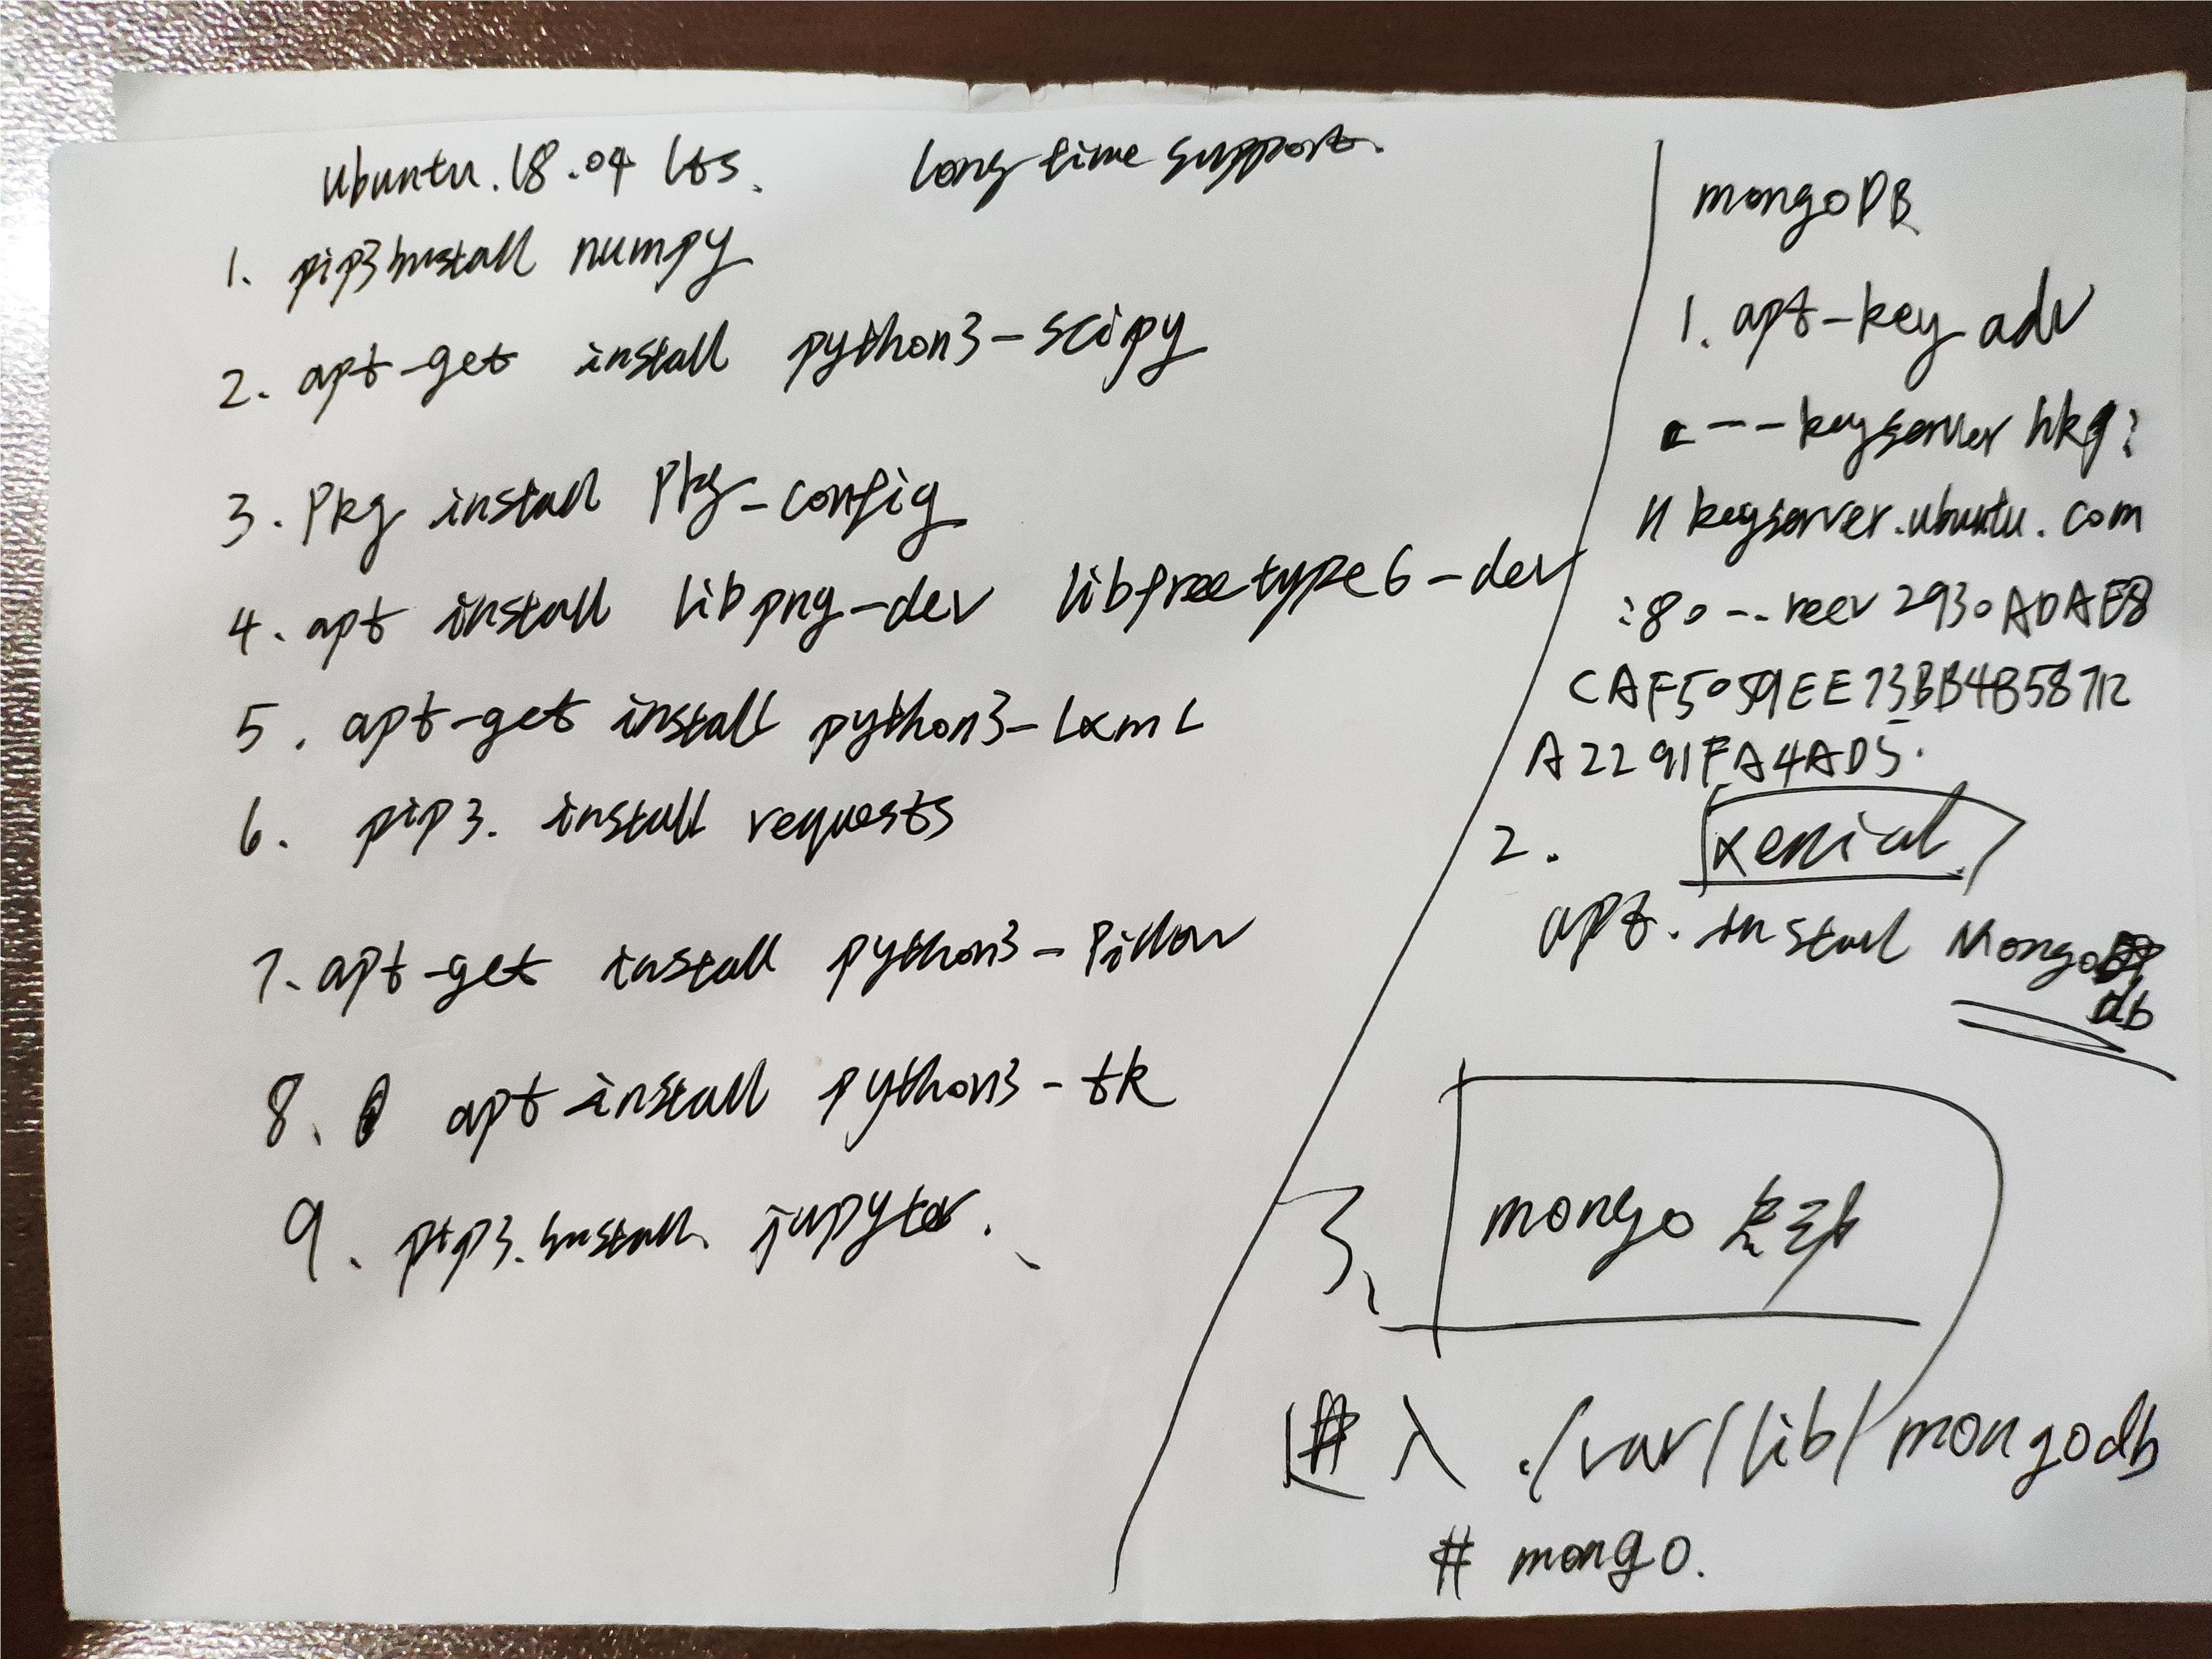 ubuntu.18.04 lts.
long time support.
1. pip3 install numpy
2. apt-get install python3-scipy
3. Pkg install Pkg-config
4. apt install libpng-dev libfreetype6-dev
5. apt-get install python3-lxml
6. pip3. install requests
7. apt-get install python3-Pillow
8. apt install python3-tk
9. pip3. install jupyter.
mongoDB
1. apt-key adv
--keyserver hkp:
// keyserver.ubuntu.com
:80 -- recv 2930ADAE8
CAF5059EE73BB4B58712
A2291FA4AD5.
2. xenial
apt. install Mongo
db
3. mongo
进入 ./var/lib/mongodb
# mongo.